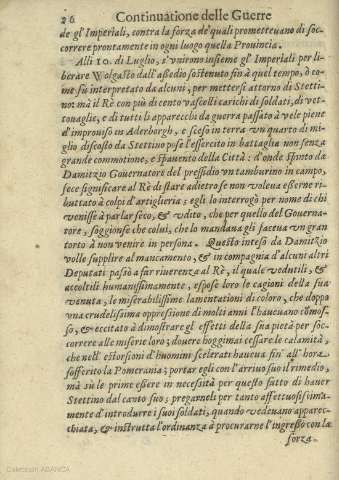 26 Continuatione delle Guerre
de gl' Imperiali, contra la forza de' quali promettevano di soc-
correre prontamente in ogni luogo quella Provincia.
Alli 10. di Luglio, s'vnirono insieme gl' Imperiali per li-
berare Wolgasto dall'assedio sostenuto fin à quel tempo, ò co-
me fù interpretato da alcuni, per mettersi attorno di Stetti-
no: mà il Rè con più di cento vascelli carichi di soldati, di vet-
touaglie, e di tutti li apparecchi da guerra passato à vele piene
d'improuiso in Aderborgh, e sceso in terra vn quarto di mi-
glio discosto da Stettino pose l'essercito in battaglia non senza
grande commotione, e spauento della Città: d'onde spinto da
Damitzio Gouernatore del pressidio vn tamburino in campo,
fece significare al Rè di stare adietro se non voleua esserne ri-
buttato à colpi d'artiglieria; egli lo interrogò per nome di chi
venisse à parlar seco, & vdito, che per quello del Gouerna-
tore, soggionse che colui, che lo mandaua gli faceua vn gran
torto à non venire in persona. Questo inteso da Damitzio
volle supplire al mancamento, & in compagnia d'alcuni altri
Deputati passò a far riuerenza al Rè, il quale vedutili, &
accoltili humanissimamente, espose loro le cagioni della sua
venuta, le miserabilissime lamentationi di coloro, che doppo
vna crudelissima oppresione di molti anni l'haueuano cõmos-
so, & eccitato à dimostrare gl' effetti della sua pietà per soc-
correre alle miserie loro; douere hoggimai cessare le calamità,
che nell' estorsioni d'huomini scelerati haueua fin' all' hora
sofferito la Pomerania; portar egli con l'arriuo suo il rimedio,
mà sù le prime essere in necessità per questo fatto di hauer
Stettino dal canto suo; pregarneli per tanto affettuosissima-
mente d'introdurre i suoi soldati, quando vedeuano apparec-
chiata, & instrutta l'ordinanza à procurarne l'ingresso con la
forza.
Colección ABANCA